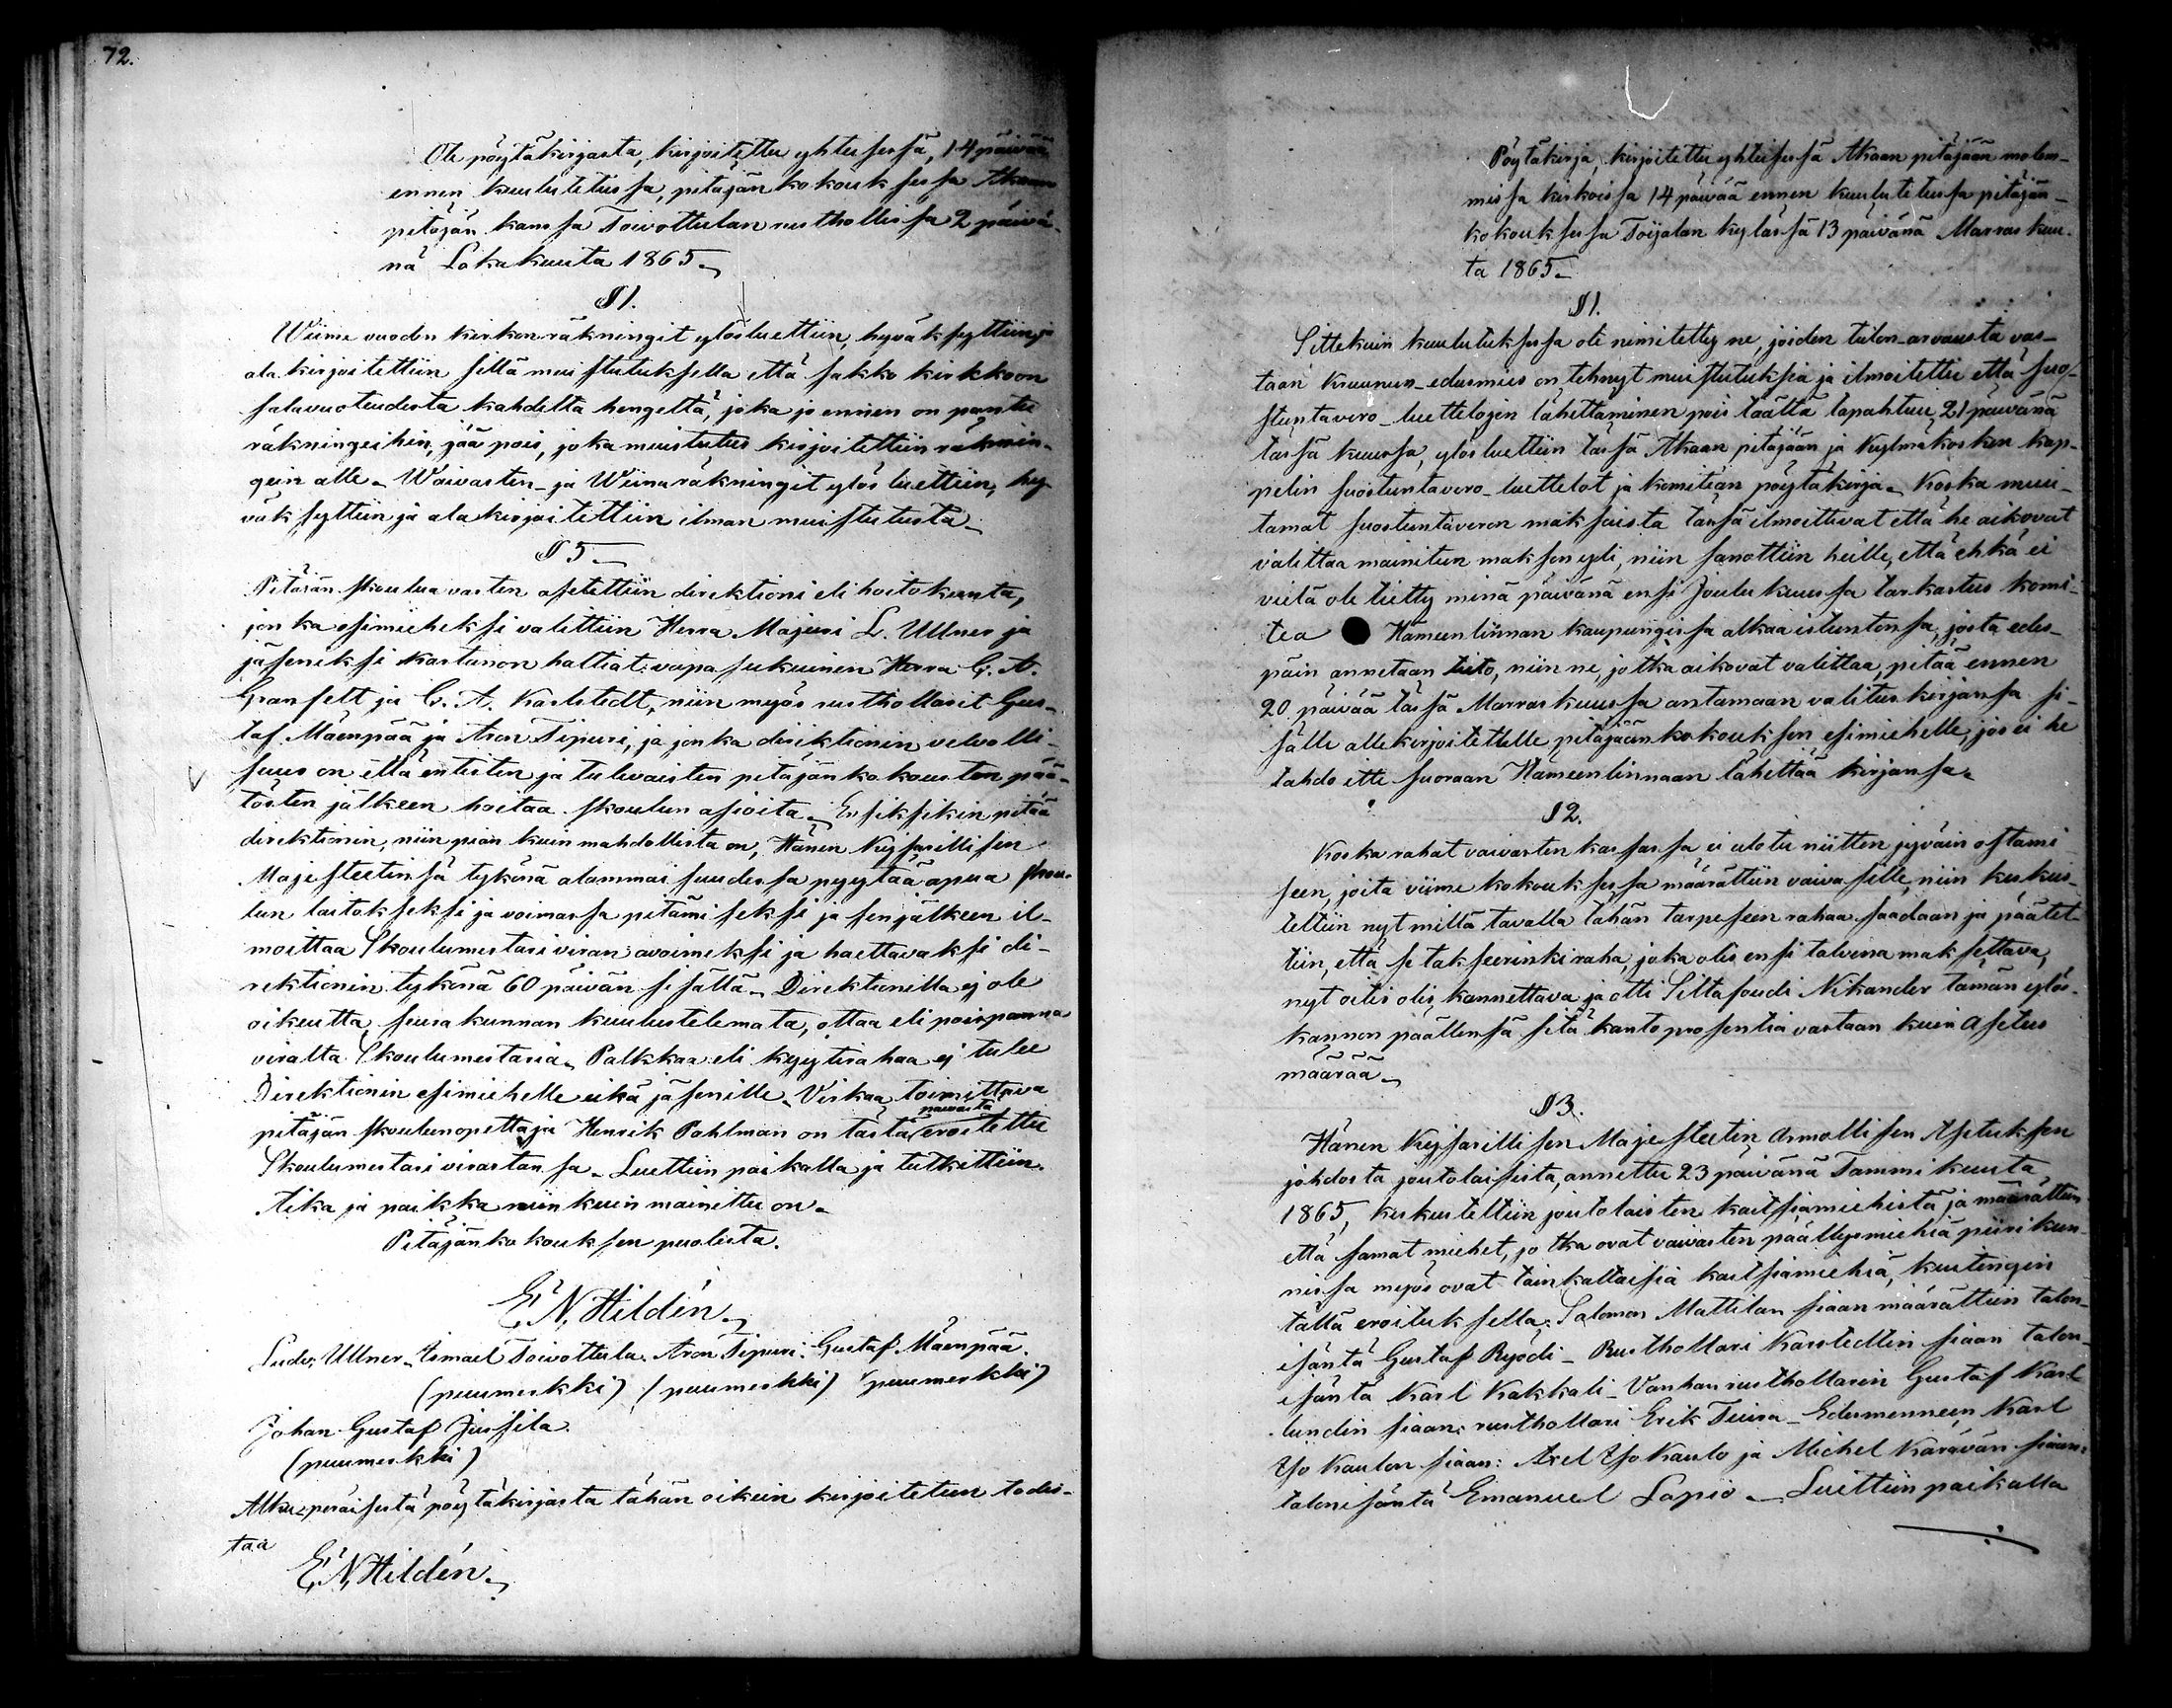 72.
Ote pöytäkirjasta, kirjoitettu yhteisessä, 14 päivää
ennen kuulutetussa, pitäjän kokouksessa Akaan
pitäjän kanssa Toivottulan rusthollissa 2 päivä-
nä Lokakuuta 1865.
§ 1.
Wiime vuoden kirkonräkningit ylösluettiin, hyväksyttiin ja
ala kirjoitettiin sillä muistutuksella että sakko kirkkoon
salavuoteudesta kahdelta hengeltä, joka jo ennen on pantu
räkningeihin, jää pois, joka muistutus kirjoitettiin räknin-
gein alle. Waivasten- ja Wiinaräkningit ylös luettiin, hy-
väksyttiin ja ala kirjoitettiin ilman muistutusta.
§ 5
Pitäjän skoulua varten asetettiin direktioni eli hoitokunta,
jonka esimieheksi valittiin Herra Majuri L. Ullner ja
jäseniksi Kartanon haltiat: vapasukuinen Herra G. A.
Granfelt ja C. A. Karlstedt, niin myös rusthollarit Gus-
taf Mäenpää ja Aron Tipuri, ja jonka direktionin velvolli-
suus on että entisten ja tulevaisten pitäjänkokousten pää-
tösten jälkeen hoitaa skoulun asioita. Ensiksikin pitää
direktionin, niin pian kuin mahdollista on, Hänen Keisarillisen
Majesteetinsä tykönä alammaisuudessa pyytää apua skou-
lun laitokseksi ja voimassa pitämiseksi ja sen jälkeen il-
moittaa Skoulumestari viran avoimeksi ja haettavaksi di-
rektionin tykönä 60 päivän sisällä. Direktionilla ej ole
oikeutta, seurakunnan kuulustelemata, ottaa eli poispanna
viralta Skoulumestaria. Palkkaa eli kyytirahaa ej tule
Direktionin esimiehelle eikä jäsenille. Virkaa toimittava
pitäjän skoulunopettaja Henrik Pahlman on tästä päivästä eroitettu
Skoulumestari virastansa. Luettiin paikalla ja tutkittiin.
Aika ja paikka niinkuin mainittu on.
Pitäjänkokouksen puolesta.
E. N. Hildén.
Ludv. Ullner. Ismael Toivottula. Aron Tipuri. Gustaf Mäenpää.
(puumerkki) (puumerkki) (puumerkki)
Johan Gustaf Jussila.
(puumerkki)
Alkuperäisestä pöytäkirjasta tähän oikein kirjoitetun todis-
taa
E. N. Hildén.
Pöytäkirja, kirjoitettu yhteisessä Akaan pitäjään molem-
missa kirkoissa 14 päivää ennen kuulutetussa pitäjän-
kokouksessa Toijalan kylässä 13 päivänä Marraskuu-
ta 1865.
§ 1.
Sittekuin kuulutuksessa oli nimitetty ne, joiden tulon-arvausta vas-
taan Kruunun-edusmies on tehnyt muistutuksia ja ilmoitettu että suo-
stuntavero-luettelojen lähettäminen pois täältä tapahtuu 21 päivänä
tässä kuussa, ylösluettiin tässä Akaan pitäjään ja Kylmäkosken kap-
pelin suostuntavero-luettelot ja komitean pöytäkirja. Koska muu-
tamat suostuntaveron maksajista tässä ilmoittivat että he aikovat
valittaa mainitun makson yli, niin sanottiin heille, että ehkä ei
vielä ole tietty minä päivänä ensi Joulukuussa tarkastus komi-
tea Hämeenlinnan kaupungissa alkaa istuntonsa, josta edes-
päin annetaan tieto, niin ne, jotka aikovat valittaa, pitää ennen
20 päivää tässä Marraskuussa antamaan valituskirjansa si-
sälle allekirjoitetulle pitäjäänkokouksen esimiehelle, jos ei he
tahdo itte suoraan Hämeenlinnaan lähettää kirjansa.
§ 2.
Koska rahat vaivasten kassassa ei ulotu niitten jyväin ostami
seen, joita viime kokouksessa määrättiin vaivasille, niin keskus-
teltiin nyt millä tavalla tähän tarpeseen rahaa saadaan ja päätet-
tiin, että se takseerinkiraha, joka olis ensi talvena maksettava,
nyt oitis olis kannettava ja otti Siltafouti Nikander tämän ylös-
kannon päällensä sitä kantoprosentia vastaan kuin Asetus
määrää.
§ 3.
Hänen Keisarillisen Majesteetin Armollisen Asetuksen
johdosta joutolaisista, annettu 23 päivänä Tammikuuta
1865, keskusteltiin joutolaisten kaitsiamiehistä ja määrättiin
että samat miehet, jotka ovat vaivasten päällysmiehiä piirikun-
nissa myös ovat tainkaltaisia kaitsiamiehiä, kuitengin
tällä eroituksella: Salomon Mattilan siaan määrättiin talon-
isäntä Gustaf Ryödi - Rusthollari Karstedtin siaan talon-
isäntä Karl Kakkali - Vanhan rusthollarin Gustaf Karl-
lundin siaan: rusthollari Erik Tuira - Edusmenneen Karl
Iso Kaulon siaan: Axel Iso Kaulo ja Michel Kärävän siaan:
talonisäntä Emanuel Lapio. Luettiin paikalla